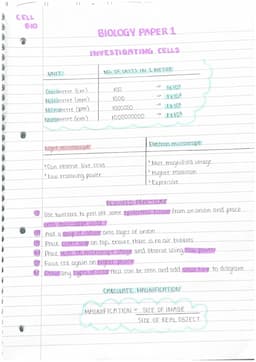 CELL
BIO
BIOLOGY PAPER 1
INVESTIGATING CELLS
UNITS NO. OF UNITS IN 1 METRE
Centimetre (cm) 100
Millimetre (mm) 1000
Micrometre (µm) 1000000
Nanometre (nm) 1000000000
Light microscope Electron microscope
*Can observe live cells *High magnified image
*Low resolving power *Higher resolution
*Expensive
REQUIRED PRACTICAL
Use tweezers to peel off some epidermal tissue from an onion and place
Add a drop of iodine onto layer of onion
Place cover slip on top, ensure there is no air bubbles
Place slide on microscope stage and observe using low power
Focus it again on higher power
types of cells that can be seen and add to diagram
CALCULATE MAGNIFICATION
MAGNIFICATION = SIZE OF IMAGE
SIZE OF REAL OBJECT